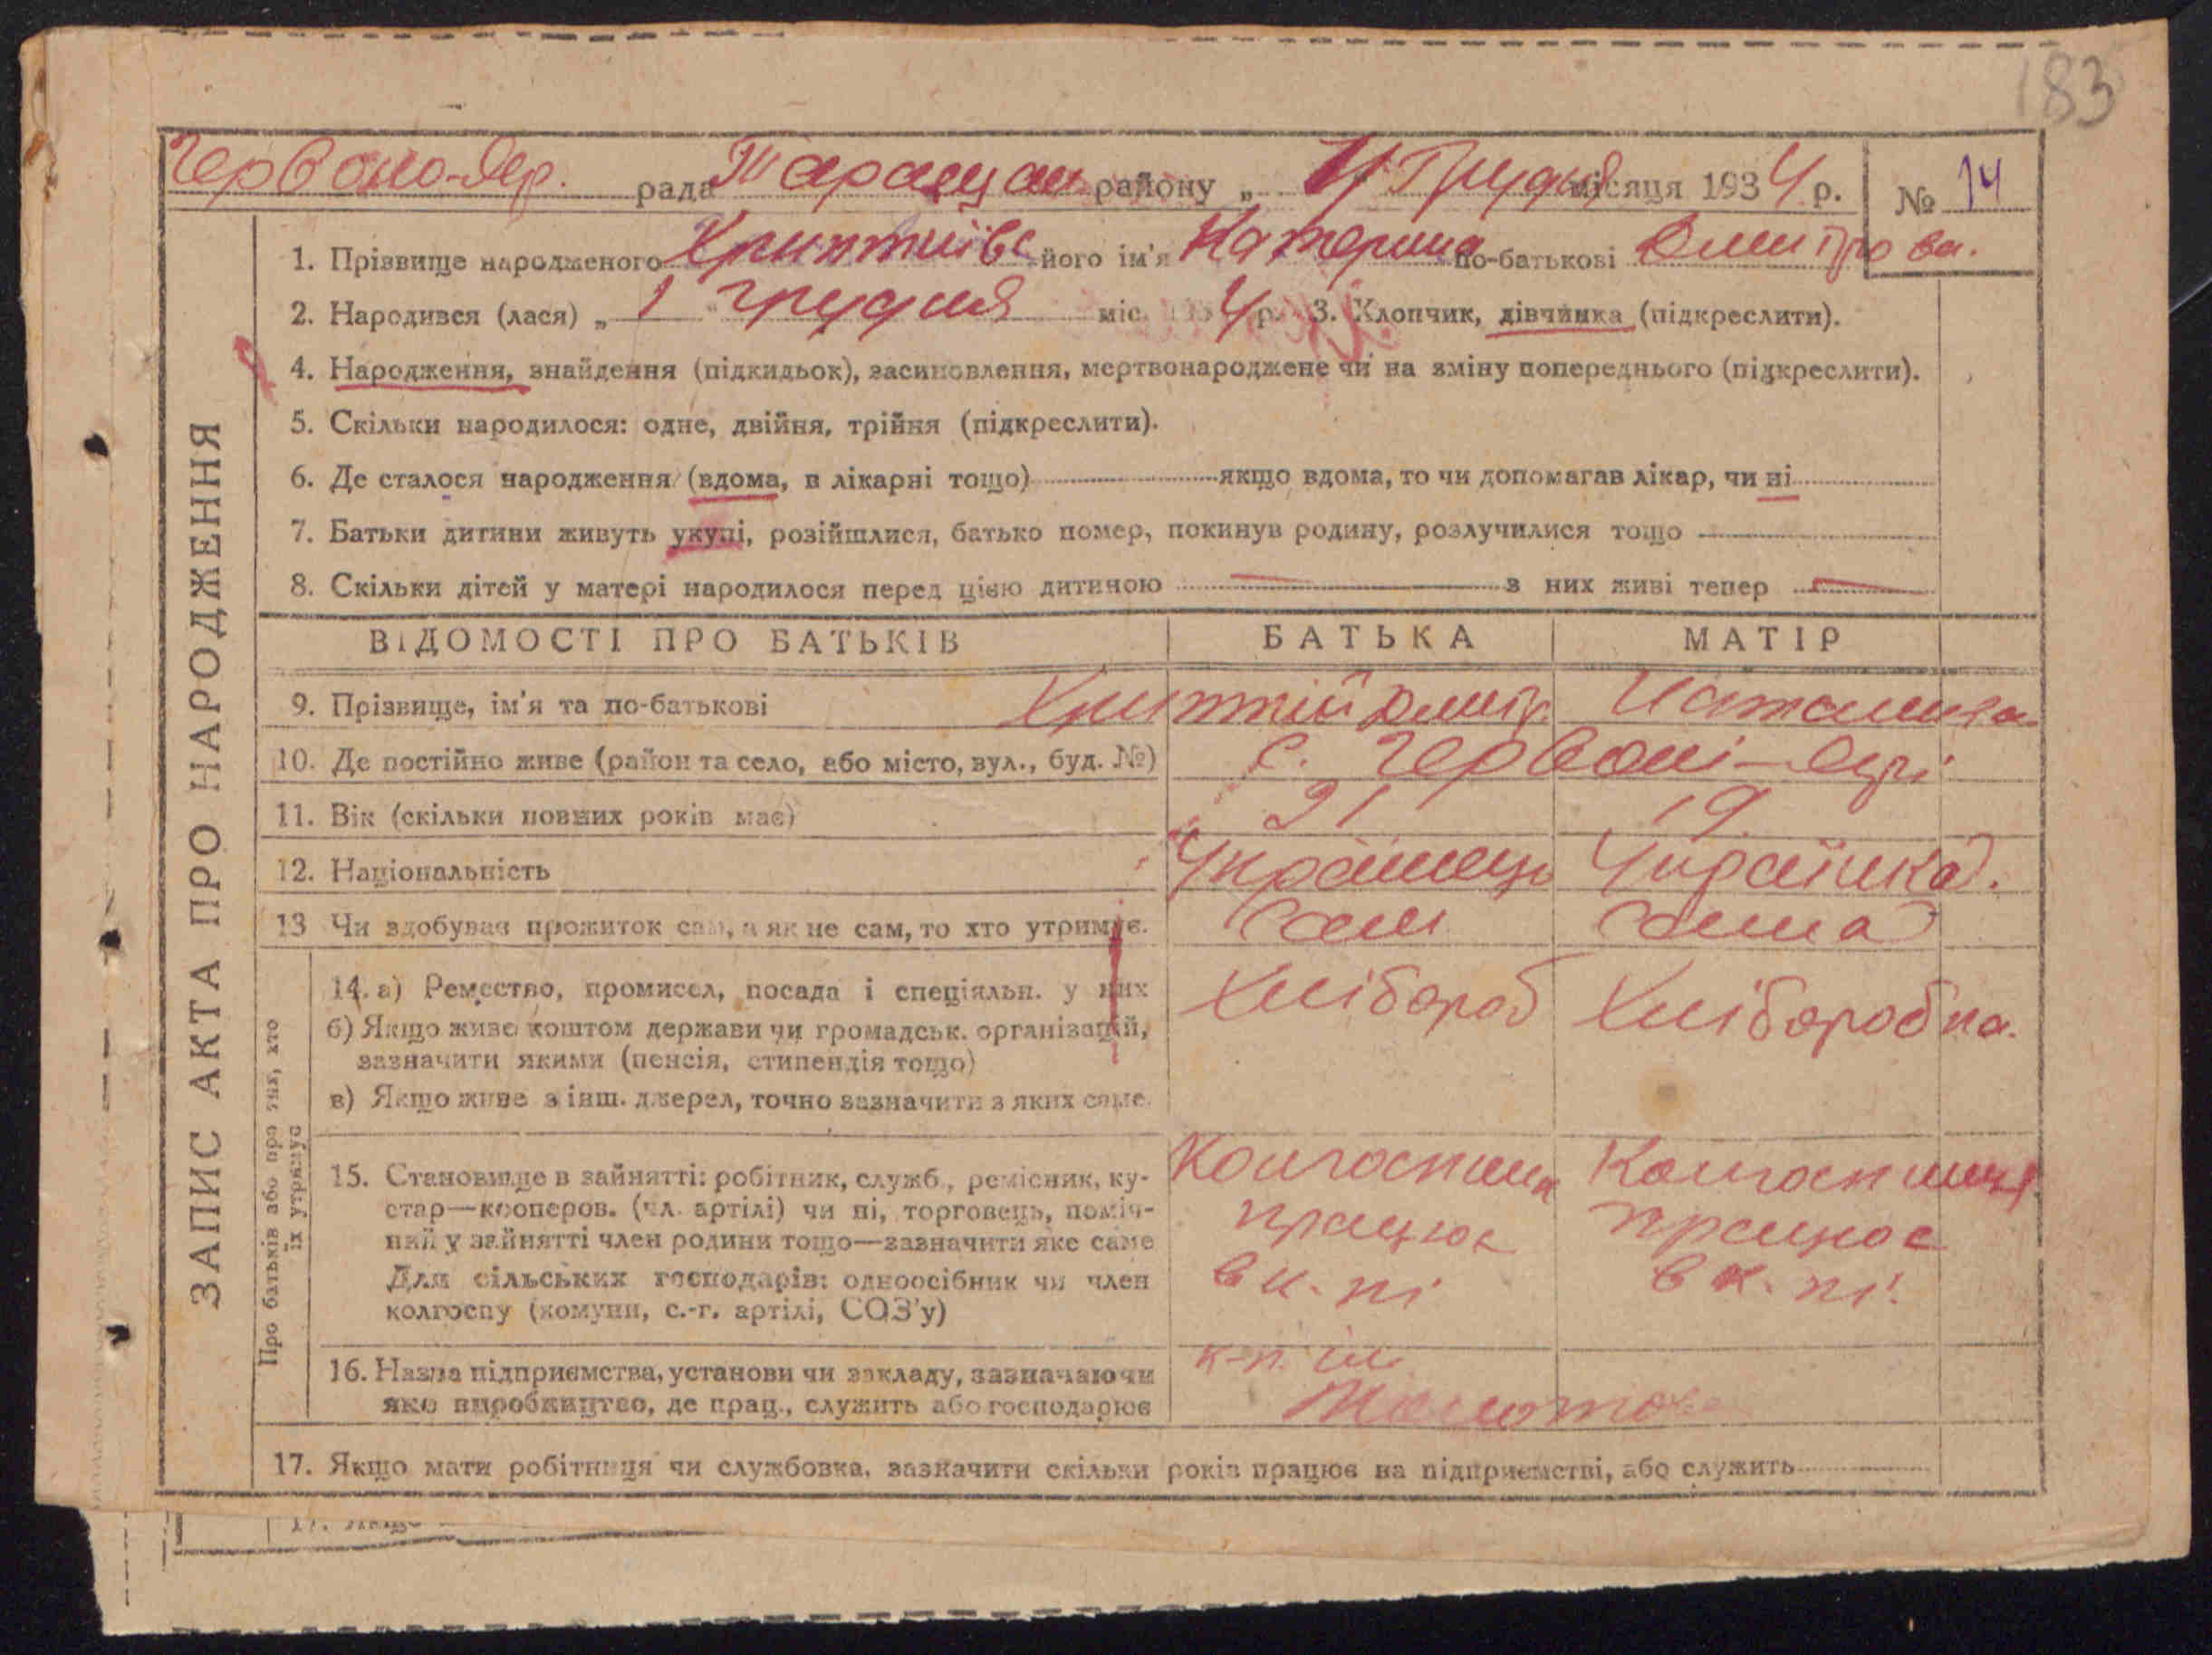 183
Червоно-Яр. рада Таращан. району „ 4 Грудня місяця 1934 р. № 14
1. Прізвище народженого його ім'я Катерина по-батькові Дмитрова.
2. Народився (лася) „ 1 " грудня міс. 1934 р. 3. Хлопчик, дівчинка (підкреслити).
4. Народження, знайдення (підкидьок), засиновлення, мертвонароджене чи на зміну попереднього (підкреслити).
5. Скільки народилося: одне, двійня, трійня (підкреслити).
6. Де сталося народження (вдома, в лікарні тощо) якщо вдома, то чи допомагав лікар, чи ні
7. Батьки дитини живуть укупі, розійшлися, батько помер, покинув родину, розлучилися тощо
8. Скільки дітей у матері народилося перед цією дитиною — з них живі тепер —
ВІДОМОСТІ ПРО БАТЬКІВ БАТЬКА МАТІР
9. Прізвище, ім'я та по-батькові Дмитр.
10. Де постійно живе (район та село, або місто, вул., буд. №) с. Червоні-Яри
11. Вік (скільки повних років має) 21 19
12. Національність Українець Українка.
13 Чи здобував прожиток сам, а як не сам, то хто утримує. Сам Сама
14. а) Ремество, промисел, посада і спеціяльн. у них Хлібороб Хліборобка.
б) Якщо живе коштом держави чи громадськ. організацій,
зазначити якими (пенсія, стипендія тощо)
в) Якщо живе з інш. джерел, точно зазначити з яких саме.
15. Становище в зайнятті: робітник, служб., ремісник, ку-
стар—кооперов. (чл. артілі) чи ні, торговець, поміч-
ний у зайнятті член родини тощо—зазначити яке саме
Для сільських господарів: одноосібник чи член
колгоспу (комуни, с.-г. артілі, СОЗ'у)
Колгоспник
працює
в к-пі
Колгоспниця
працює
в к-пі.
16. Назва підприємства, установи чи закладу, зазначаючи
яке виробництво, де прац., служить або господарює
к-п. ім.
Молотова
17. Якщо мати робітниця чи службовка, зазначити скільки років працює на підприємстві, або служить
ЗАПИС АКТА ПРО НАРОДЖЕННЯ
Про батьків або про тих, хто
їх утримує
17. Якщо